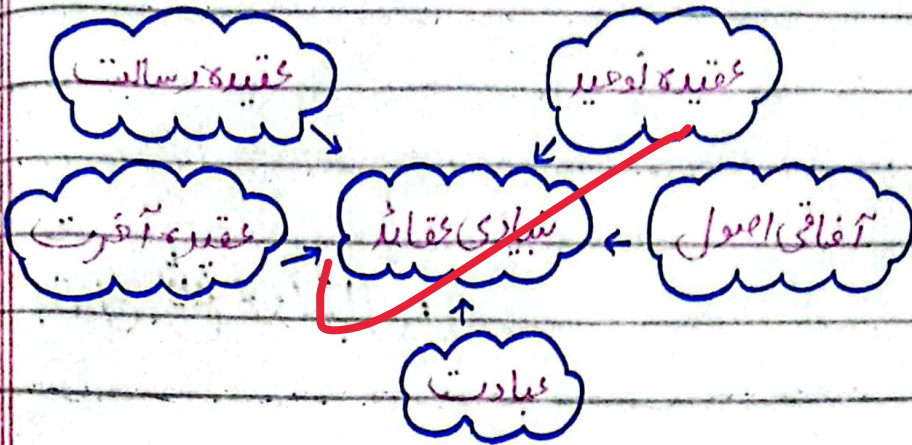 عقیدہ توحید
عقیدہ رسالت
آفاقی اصول
بنیادی عقائد
عقیدہ آخرت
عبادت